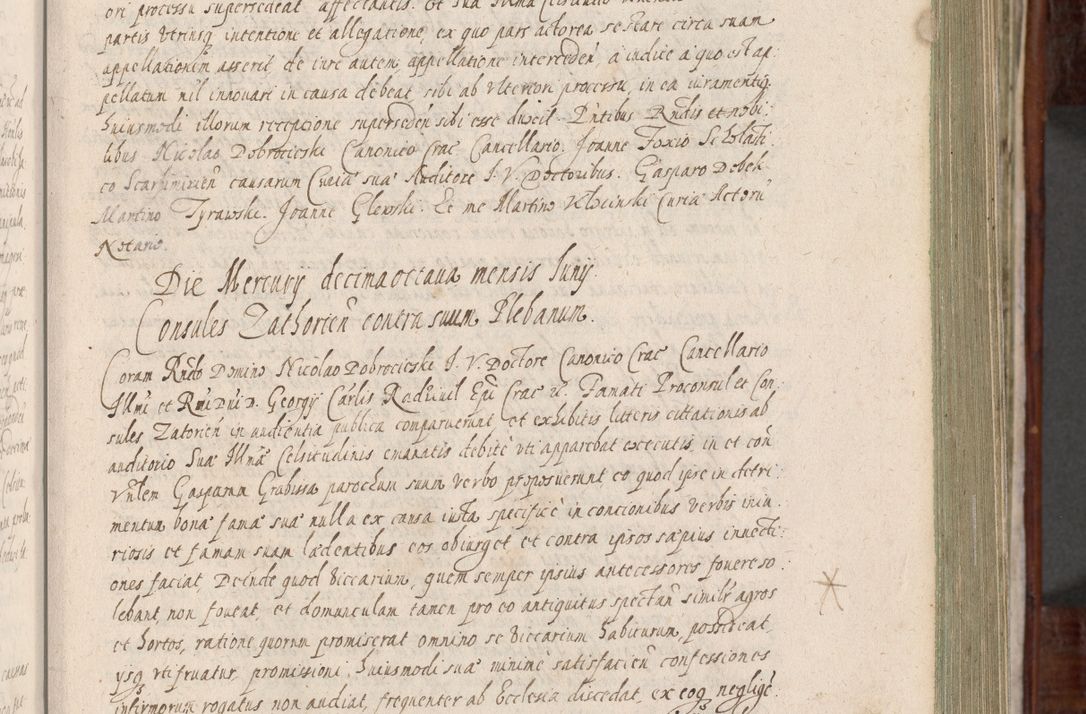 ori processu supersedeat affectantis. Et sua
partis utriusq intentione et allegatione, ex quo pars actorea se stare circa suam
appellationem asserit, de iure autem, appellatione interceden, a iudice a quo est ap:
pellatum nil innovari in causa debeat sibi ab ulteriori processu, in ea iuramentiq
huiusmodi illorum receptione superseden sibi esse duxit. Pntibus Rndis et nobi:
libus Nicolao Dobrocieski Canonico Crac Cancellario. Joanne Foxio Scholasti:
co Scarbimirien causarum Curiae suae Auditore J. V. Doctoribus. Gasparo Dobek
Martino Tyrawski. Joanne Glewski. Et me Martino Klocinski Curiae Actoru
Notario.
Die Mercurij decima octava mensis Juny.
Consules Zathorien contra suum Plebanum.
Coram Rndo Domino Nicolao Dobrocieski J. V. Doctore Canonico Crac Cancellario
Illmi et Rmi Dni D. Georgij Carlis Radziuil Epi Crac etc. Famati Proconsul et Con
sules Zatorien in audientia publica comparuerunt et exhibitis litteris citationis ab
auditorio Suae Illmae Celsitudinis emanatis debite uti apparebat executis, in et con
untem Gasparum Grabissa parochum suum verbo proposuerunt eo quod ipse in detri:
mentum bonae famae suae nulla ex causa iusta specifice in concionibus verbis iniu:
riosis et famam suam laedentibus eos obiurget et contra ipsos saepius invecti:
ones faciat, Deinde quod Viccarium, quem semper ipsius antecessores fovere so:
lebant, non foveat, et domunculam tamen pro eo antiquitus spectan simili agros
et hortos, ratione quorum promiserat omnino se Viccarium habiturum, possideat,
ysq uti fruatur, promissioni huiusmodi suae minime satisfacien confessiones
infirmorum rogatus non audiat, frequenter ab Ecclesia discedat, ex eoq neglige: